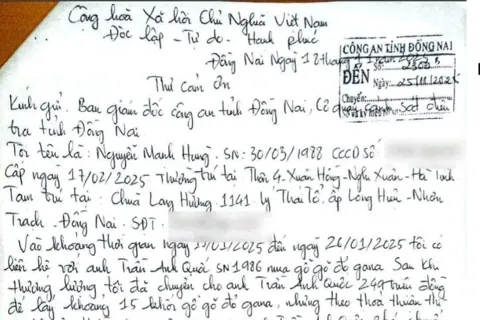 Cộng hoà Xã hội Chủ Nghĩa Việt Nam
Độc lập - Tự do - Hạnh phúc
Đồng Nai Ngày 12 tháng
CÔNG AN TỈNH ĐỒNG NAI
ĐẾN
Số:
Ngày: 25/11/2025
Chuyển:
Thư cảm ơn
Kính gửi: Ban giám đốc công an tỉnh Đồng Nai, Cơ quan cảnh sát điều
tra tỉnh Đồng Nai
Tôi tên là: Nguyễn Mạnh Hùng. SN: 30/03/1988 CCCD Số
Cấp ngày 17/02/2025 Thường trú tại Thôn 4-Xuân Hồng-Nghi Xuân-Hà Tĩnh
Tạm trú tại: Chùa Lang Hương 1141. Lý Thái Tổ, ấp Long Hiệu - Nhơn
Trạch - Đồng Nai. SĐT.
Vào khoảng thời gian ngày /01/2025 đến ngày 26/01/2025 tôi có
liên hệ với anh Trần Anh Quốc SN 1986 mua gỗ gõ đỏ gana. Sau khi
thương lượng tôi đã chuyển cho anh Trần Anh Quốc 249 triệu đồng
để lấy khoảng 15 khối gỗ gõ đỏ gana, nhưng theo thoả thuận thì